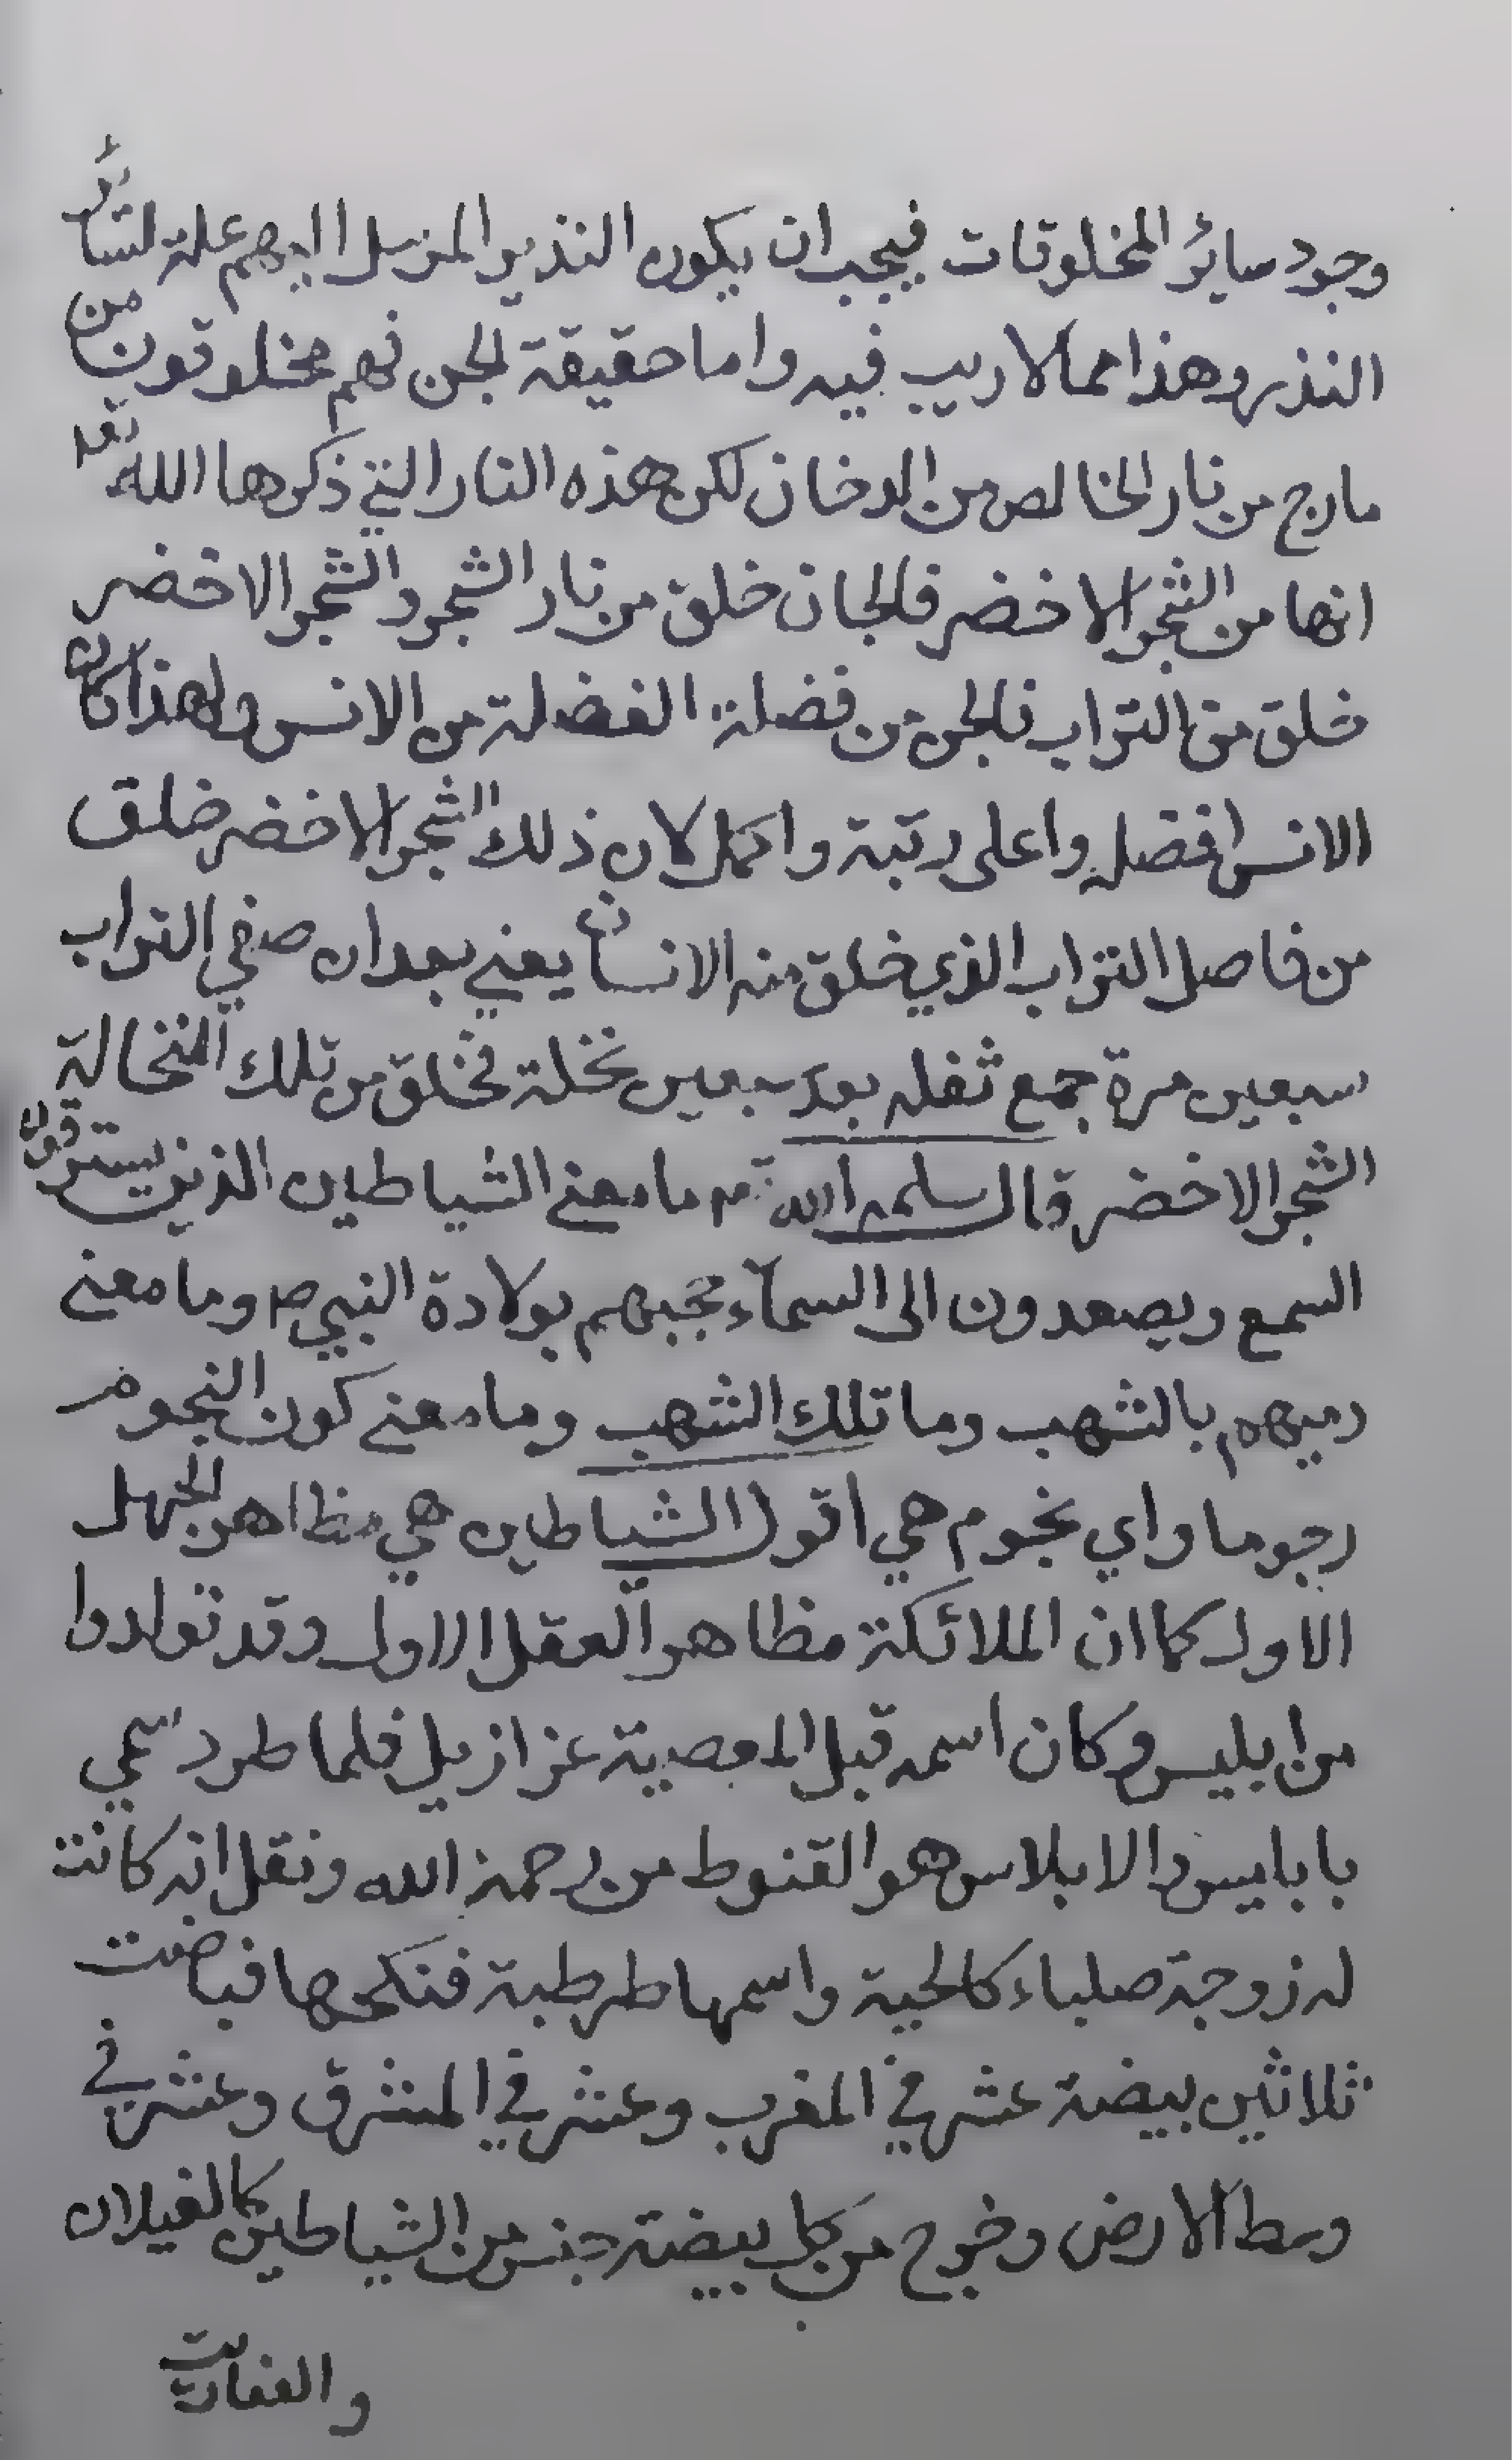 وجود سائر المخلوقات فيجب ان يكون النذير المرسل اليهم علة لسائر
النذر وهذا مما لا ريب فيه واما حقيقة الجن فهم مخلوقون من
مارج من نار الخالص من الدخان لكن هذه النار التي ذكرها الله تعالى
انها من الشجر الاخضر فالجان خلق من نار الشجر والشجر الاخضر
خلق من التراب فالجن من فضلة الفضلة من الانس ولهذا كان
الانس افضل واعلى رتبة واكمل لان ذلك الشجر الاخضر خلق
من فاضل التراب الذي خلق منه الانسان يعني بعد ان صفي التراب
سبعين مرة جمع ثفله بعد سبعين نخلة فخلق من تلك النخالة
الشجر الاخضر قال سلمه الله تع ما معنى الشياطين الذين يسترقون
السمع ويصعدون الى السمآء حجبهم بولادة النبي ص وما معنى
رميهم بالشهب وما تلك الشهب وما معنى كون النجوم
رجوما واي نجوم هي اقول الشياطين هي مظاهر الجهل
الاول كما ان الملائكة مظاهر العقل الاول وقد تولدوا
من ابليس وكان اسمه قبل المعصية عزازيل فلما طرد سمي
بابليس والابلاس هو القنوط من رحمة الله ونقل انه كانت
له زوجة صلباء كالحية واسمها طرطبة فنكحها فباضت
ثلاثين بيضة عشر في المغرب وعشر في المشرق وعشر في
وسط الارض وخرج من كل بيضة جنس من الشياطين كالغيلان
والعفاريت